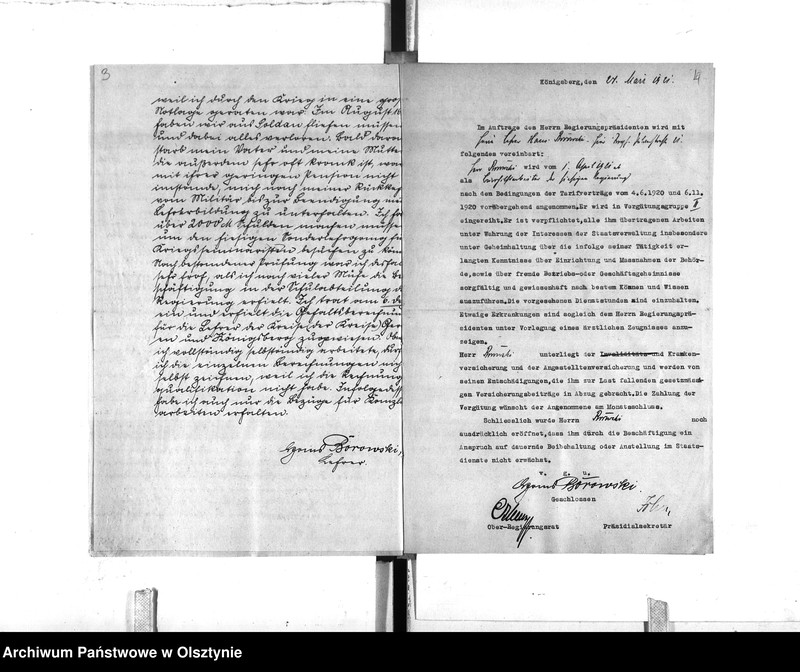 3
weil ich durch den Krieg in eine gros
Notlage geraten war. Im August 14
haben wir aus Soldau fliehen müssen
und dabei alles verloren. Bald darau
starb mein Vater und meine Mutte
die außerdem sehr oft krank ist, war
mit ihrer geringen Pension nicht
imstande, mich nach meiner Rückkeh
vom Militär bis zur Beendigung mei
Lehrerbildung zu unterhalten. Ich ha
über 2000 M Schulden machen müssen
um den hiesigen Sonderlehrgang für
Kriegsseminaristen besuchen zu kön
Nach bestandener Prüfung war ich daher
sehr froh, als ich nach vieler Mühe die Be
schäftigung in der Schulabteilung d
Regierung erhielt. Ich trat am 6. de
ein und erhielt die Gehaltsberechnun
für die Lehrer der Kreise
en und Königsberg zugewiesen. Ob
ich vollständig selbständig arbeitete, dür
ich die einzelnen Berechnungen nich
selbst zeichnen, weil ich die Rechnung
qualifikation nicht habe. Infolgedess
habe ich auch nur die Bezüge für Kanzl
arbeiten erhalten.
Borowski,
Lehrer.
4
Königsberg, den 21. März 1921.
Im Auftrage des Herrn Regierungspräsidenten wird mit
folgendes vereinbart:
wird vom 1. April 1921 ab
als
nach den Bedingungen der Tarifverträge vom 4.6.1920 und 6.11.
1920 vorübergehend angenommen. Er wird in Vergütungsgruppe II
eingereiht. Er ist verpflichtet, alle ihm übertragenen Arbeiten
unter Wahrung der Interessen der Staatsverwaltung insbesondere
unter Geheimhaltung über die infolge seiner Tätigkeit er-
langten Kenntnisse über Einrichtung und Massnahmen der Behör-
de, sowie über fremde Betriebs-oder Geschäftsgeheimnisse
sorgfältig und gewissenhaft nach bestem Können und Wissen
auszuführen. Die vorgesehenen Dienststunden sind einzuhalten.
Etwaige Erkrankungen sind sogleich dem Herrn Regierungsprä-
sidenten unter Vorlegung eines ärztlichen Zeugnisses anzu-
zeigen.
Herr Borowski unterliegt der Invaliditäts-und Kranken-
versicherung und der Angestelltenversicherung und werden von
seinen Entschädigungen, die ihm zur Last fallenden gesetzmässi-
gen Versicherungsbeiträge in Abzug gebracht. Die Zahlung der
Vergütung wünscht der Angenommene am Monatsschluss.
Schliesslich wurde Herrn Borowski noch
ausdrücklich eröffnet, dass ihm durch die Beschäftigung ein
Anspruch auf dauernde Beibehaltung oder Anstellung im Staats-
dienste nicht erwächst.
v. g. u.
Borowski.
Geschlossen
Ober-Regierungsrat Präsidialsekretär
Archiwum Państwowe w Olsztynie